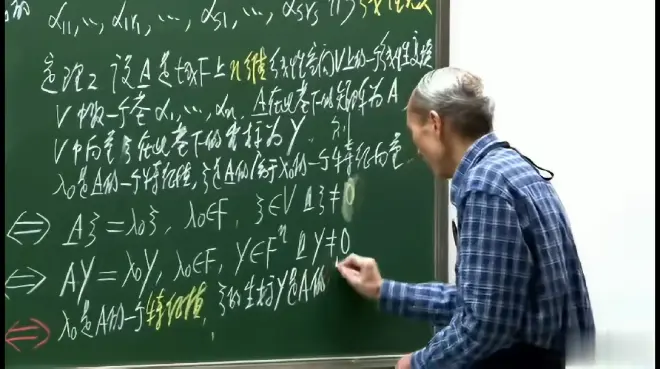 α₁₁, ⋯, α₁ᵣ₁, ⋯, αₛ₁, ⋯, αₛᵣₛ 线性无关
定理2 设A是域F上n维线性空间V上的一个线性变换
V中取一个基α₁, ⋯, αₙ, A在此基下的矩阵为A
V中向量ξ在此基下的坐标为Y. 则
λ₀是A的一个特征值, ξ是A的属于λ₀的一个特征向量
⟺ Aξ=λ₀ξ, λ₀∈F, ξ∈V且ξ≠0
⟺ AY=λ₀Y, λ₀∈F, Y∈Fⁿ且Y≠0
⟺ λ₀是A的一个特征值, ξ的坐标Y是A的